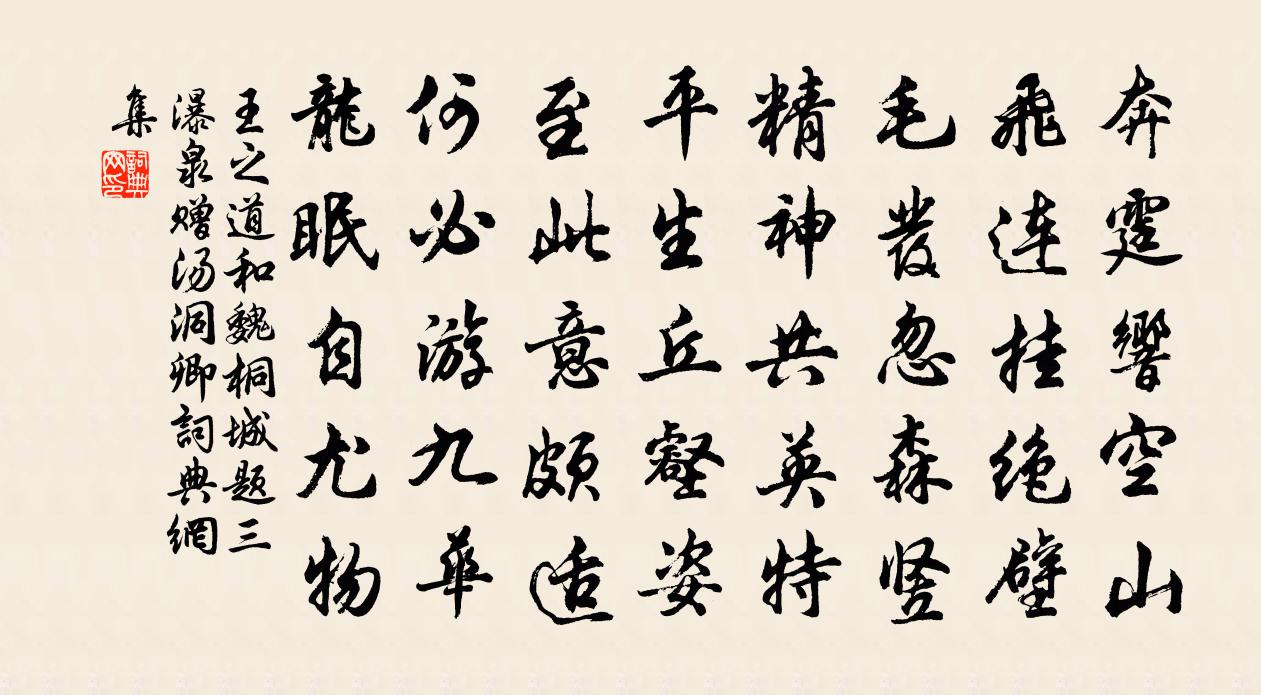 奔霆響空山
飛連挂绝壁
毛發忽森竖
精神共英特
平生丘壑姿
至此意颇适
何必游九華
龍眠自尤物
王之道和魏桐城题三
瀑泉赠汤洞卿詞典網
集
詞典
网印